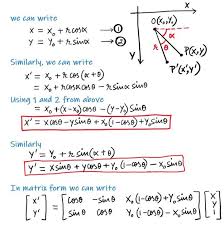 we can write
x = x₀ + r cosα → ①
y = y₀ + r sinα → ②
Similarly, we can write
x' = x₀ + r cos (α + θ)
= x₀ + r cosα cosθ - r sinα sinθ
Using 1 and 2 from above
= x₀ + (x - x₀) cosθ - (y - y₀) sinθ
x' = x cosθ - y sinθ + x₀ (1 - cosθ) + y₀ sinθ
Similarly
y' = y₀ + r sin (α + θ)
y' = x sinθ + y cosθ + y₀ (1 - cosθ) - x₀ sinθ
In matrix form we can write
[x' y'] = [cosθ -sinθ x₀ (1 - cosθ) + y₀ sinθ
sinθ cosθ y₀ (1 - cosθ) - x₀ sinθ] [x y 1]
x
O (x₀, y₀)
α
θ
r
P(x, y)
P'(x', y')
y